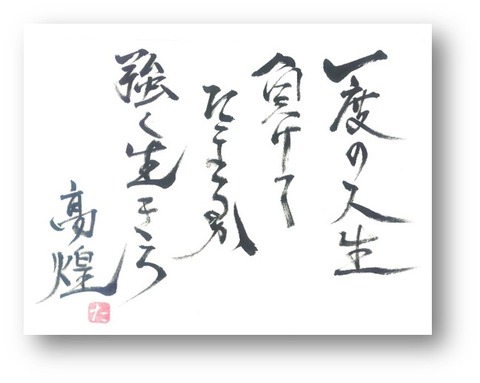 一度の人生
負けて
たまるか
強く生きろ
高煌
た